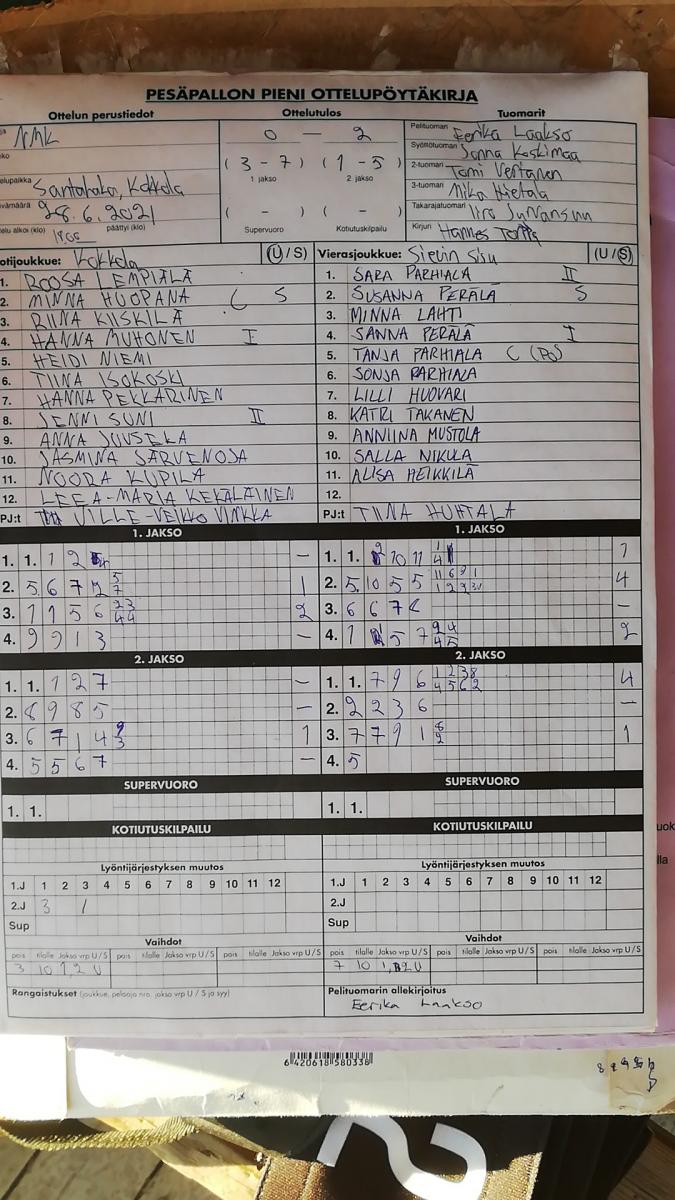 PESÄPALLON PIENI OTTELUPÖYTÄKIRJA
Ottelun perustiedot Ottelutulos Tuomarit
NMK 0 – 2 Pelituomari Eerika Laakso
(3 – 7) (1 – 5) Syöttötuomari Sanna Koskimaa
1. jakso 2. jakso 2-tuomari Tomi Vertanen
Santahaka, Kokkola 3-tuomari Mika Hietala
28.6.2021 ( – ) ( – ) Takarajatuomari Iiro
päättyi (klo) Supervuoro Kotiutuskilpailu Kirjuri Hannes
otijoukkue: Kokkola (U/S) Vierasjoukkue: Sievin Sisu (U/S)
1. ROOSA LEMPIÄLÄ 1. SARA PARHIALA II
2. MINNA HUOPANA C S 2. SUSANNA PERÄLÄ S
3. RIINA KIISKILÄ 3. MINNA LAHTI
4. HANNA MUHONEN I 4. SANNA PERÄLÄ I
5. HEIDI NIEMI 5. TANJA PARHIALA C (PO)
6. TIINA ISOKOSKI 6. SONJA PARHIALA
7. HANNA PEKKARINEN 7. LILLI HUOVARI
8. JENNI SUNI II 8. KATRI TAKANEN
9. ANNA JUUSELA 9. ANNIINA MUSTOLA
10. JASMINA JÄRVENOJA 10. SALLA NIKULA
11. NOORA KUPILA 11. ALISA HEIKKILÄ
12. LEEA-MARIA KEKÄLÄINEN 12.
PJ:t VILLE-VEIKKO VINKKA PJ:t TIINA HUHTALA
1. JAKSO 1. JAKSO
1. 1. 1 2 – 1. 1. 10 11 1
2. 5 6 7 2 5 7 1 2. 5 10 5 5 4
3. 1 1 5 6 23 44 2 3. 6 6 7 –
4. 9 9 1 3 – 4. 1 5 7 2
2. JAKSO 2. JAKSO
1. 1. 1 2 7 – 1. 1. 7 9 6 4
2. 8 9 8 5 – 2. 2 2 3 6 –
3. 6 7 1 4 9 3 1 3. 7 7 9 1 8 2 1
4. 5 5 6 7 – 4. 5
SUPERVUORO SUPERVUORO
1. 1. 1. 1.
KOTIUTUSKILPAILU KOTIUTUSKILPAILU
Lyöntijärjestyksen muutos Lyöntijärjestyksen muutos
1.J 1 2 3 4 5 6 7 8 9 10 11 12 1.J 1 2 3 4 5 6 7 8 9 10 11 12
2.J 3 1 2.J
Sup Sup
Vaihdot Vaihdot
pois tilalle Jakso vrp U/S pois tilalle Jakso vrp U/S pois tilalle Jakso vrp U/S pois tilalle Jakso vrp U/S pois tilalle Jakso vrp U/S pois tilalle Jakso vrp U/S
3 10 1,2 U 7 10
Rangaistukset (joukkue, pelaaja nro, jakso vrp U / S ja syy) Pelituomarin allekirjoitus
Eerika Laakso
6 420618 580338